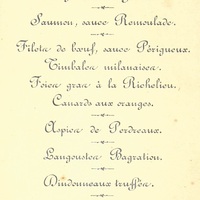 Saumon, sauce Remoulade.
Filets de bœuf, sauce Périgueux.
Timbales milanaises.
Foies gras à la Richelieu.
Canards aux oranges.
Aspics de Perdreaux.
Langoustes Bagration.
Dindonneaux truffés.